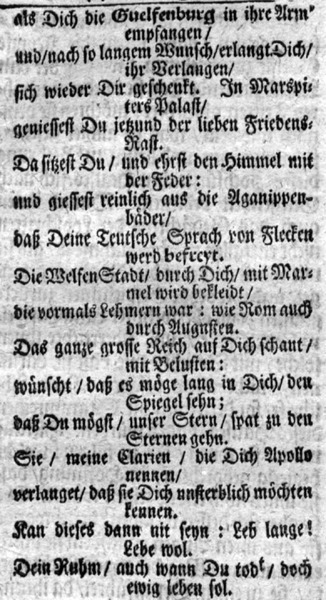 als Dich die Guelfenburg in ihre Arm'
empfangen/
und/nach so langem Wunsch/erlangt Dich/
ihr Verlangen/
sich wieder Dir geschenkt. In Marspi-
ters Palast/
geniessest Du jetzund der lieben Friedens-
Rast.
Da sitzest Du/ und ehrst den Himmel mit
der Feder:
und giessest reinlich aus die Aganippen-
bäder/
daß Deine Teutsche Sprach von Flecken
werd befreyt.
Die WelfenStadt/ durch Dich/ mit Mar-
mel wird bekleidt/
die vormals Lehmern war: wie Rom auch
durch Augusten.
Das ganze grosse Reich auf Dich schaut/
mit Belusten:
wünscht/ daß es möge lang in Dich/ den
Spiegel sehn;
daß Du mögst/ unser Stern/ spat zu den
Sternen gehn.
Sie/ meine Clarien/ die Dich Apollo
nennen/
verlanget/ daß sie Dich unsterblich möchten
kennen.
Kan dieses dann nit seyn: Leb lange!
Lebe wol.
Dein Ruhm/ auch wann Du todt/ doch
ewig leben sol.